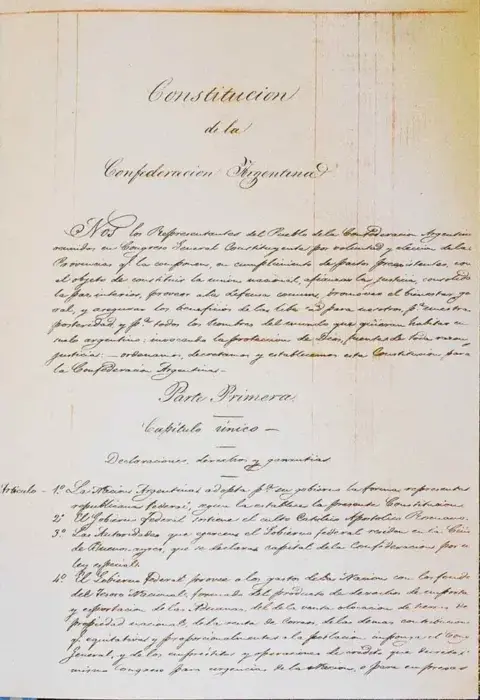 Constitucion
de la
Confederacion Argentina
Nos los Representantes del Pueblo de la Confederacion Argentina
reunidos en Congreso General Constituyente por voluntad y eleccion de las
Provincias qe la componen, en cumplimiento de pactos preexistentes, con
el objeto de constituir la union nacional, afianzar la justicia, consolidar
la paz interior, proveer a la defensa comun, promover el bienestar ge-
ral, y asegurar los beneficios de la libertad para nosotros, pa nuestra
posteridad y pa todos los hombres del mundo que quieran habitar en
suelo argentino: invocando la proteccion de Dios, fuente de toda razon y
justicia: ordenamos, decretamos y establecemos esta Constitucion, para
la Confederacion Argentina.
Parte Primera
Capítulo único
Declaraciones, derechos y garantias
Articulo - 1o La Nacion Argentina adopta pa su gobierno la forma representativa
republicana federal, segun la establece la presente Constitucion
2o El Gobierno Federal sostiene el culto Catolico Apostolico Romano.
3o Las Autoridades que ejercen el Gobierno federal residen en la Ciudad
de Buenos ayres, que se declara capital de la Confederacion por una
ley especial.
4o El Gobierno Federal provee a los gastos de la Nacion con los fondos
del Tesoro Nacional, formado del producto de derechos de importacion
y esportacion de las Aduanas, del de la venta o locacion de tierras de
propiedad nacional, de la renta de Correos, de las demas contribuciones
q. equitativa y proporcionalmente a la poblacion imponga el Congreso
General, y de los empréstitos y operaciones de credito que decrete el
mismo Congreso para urgencias de la Nacion, o para empresas